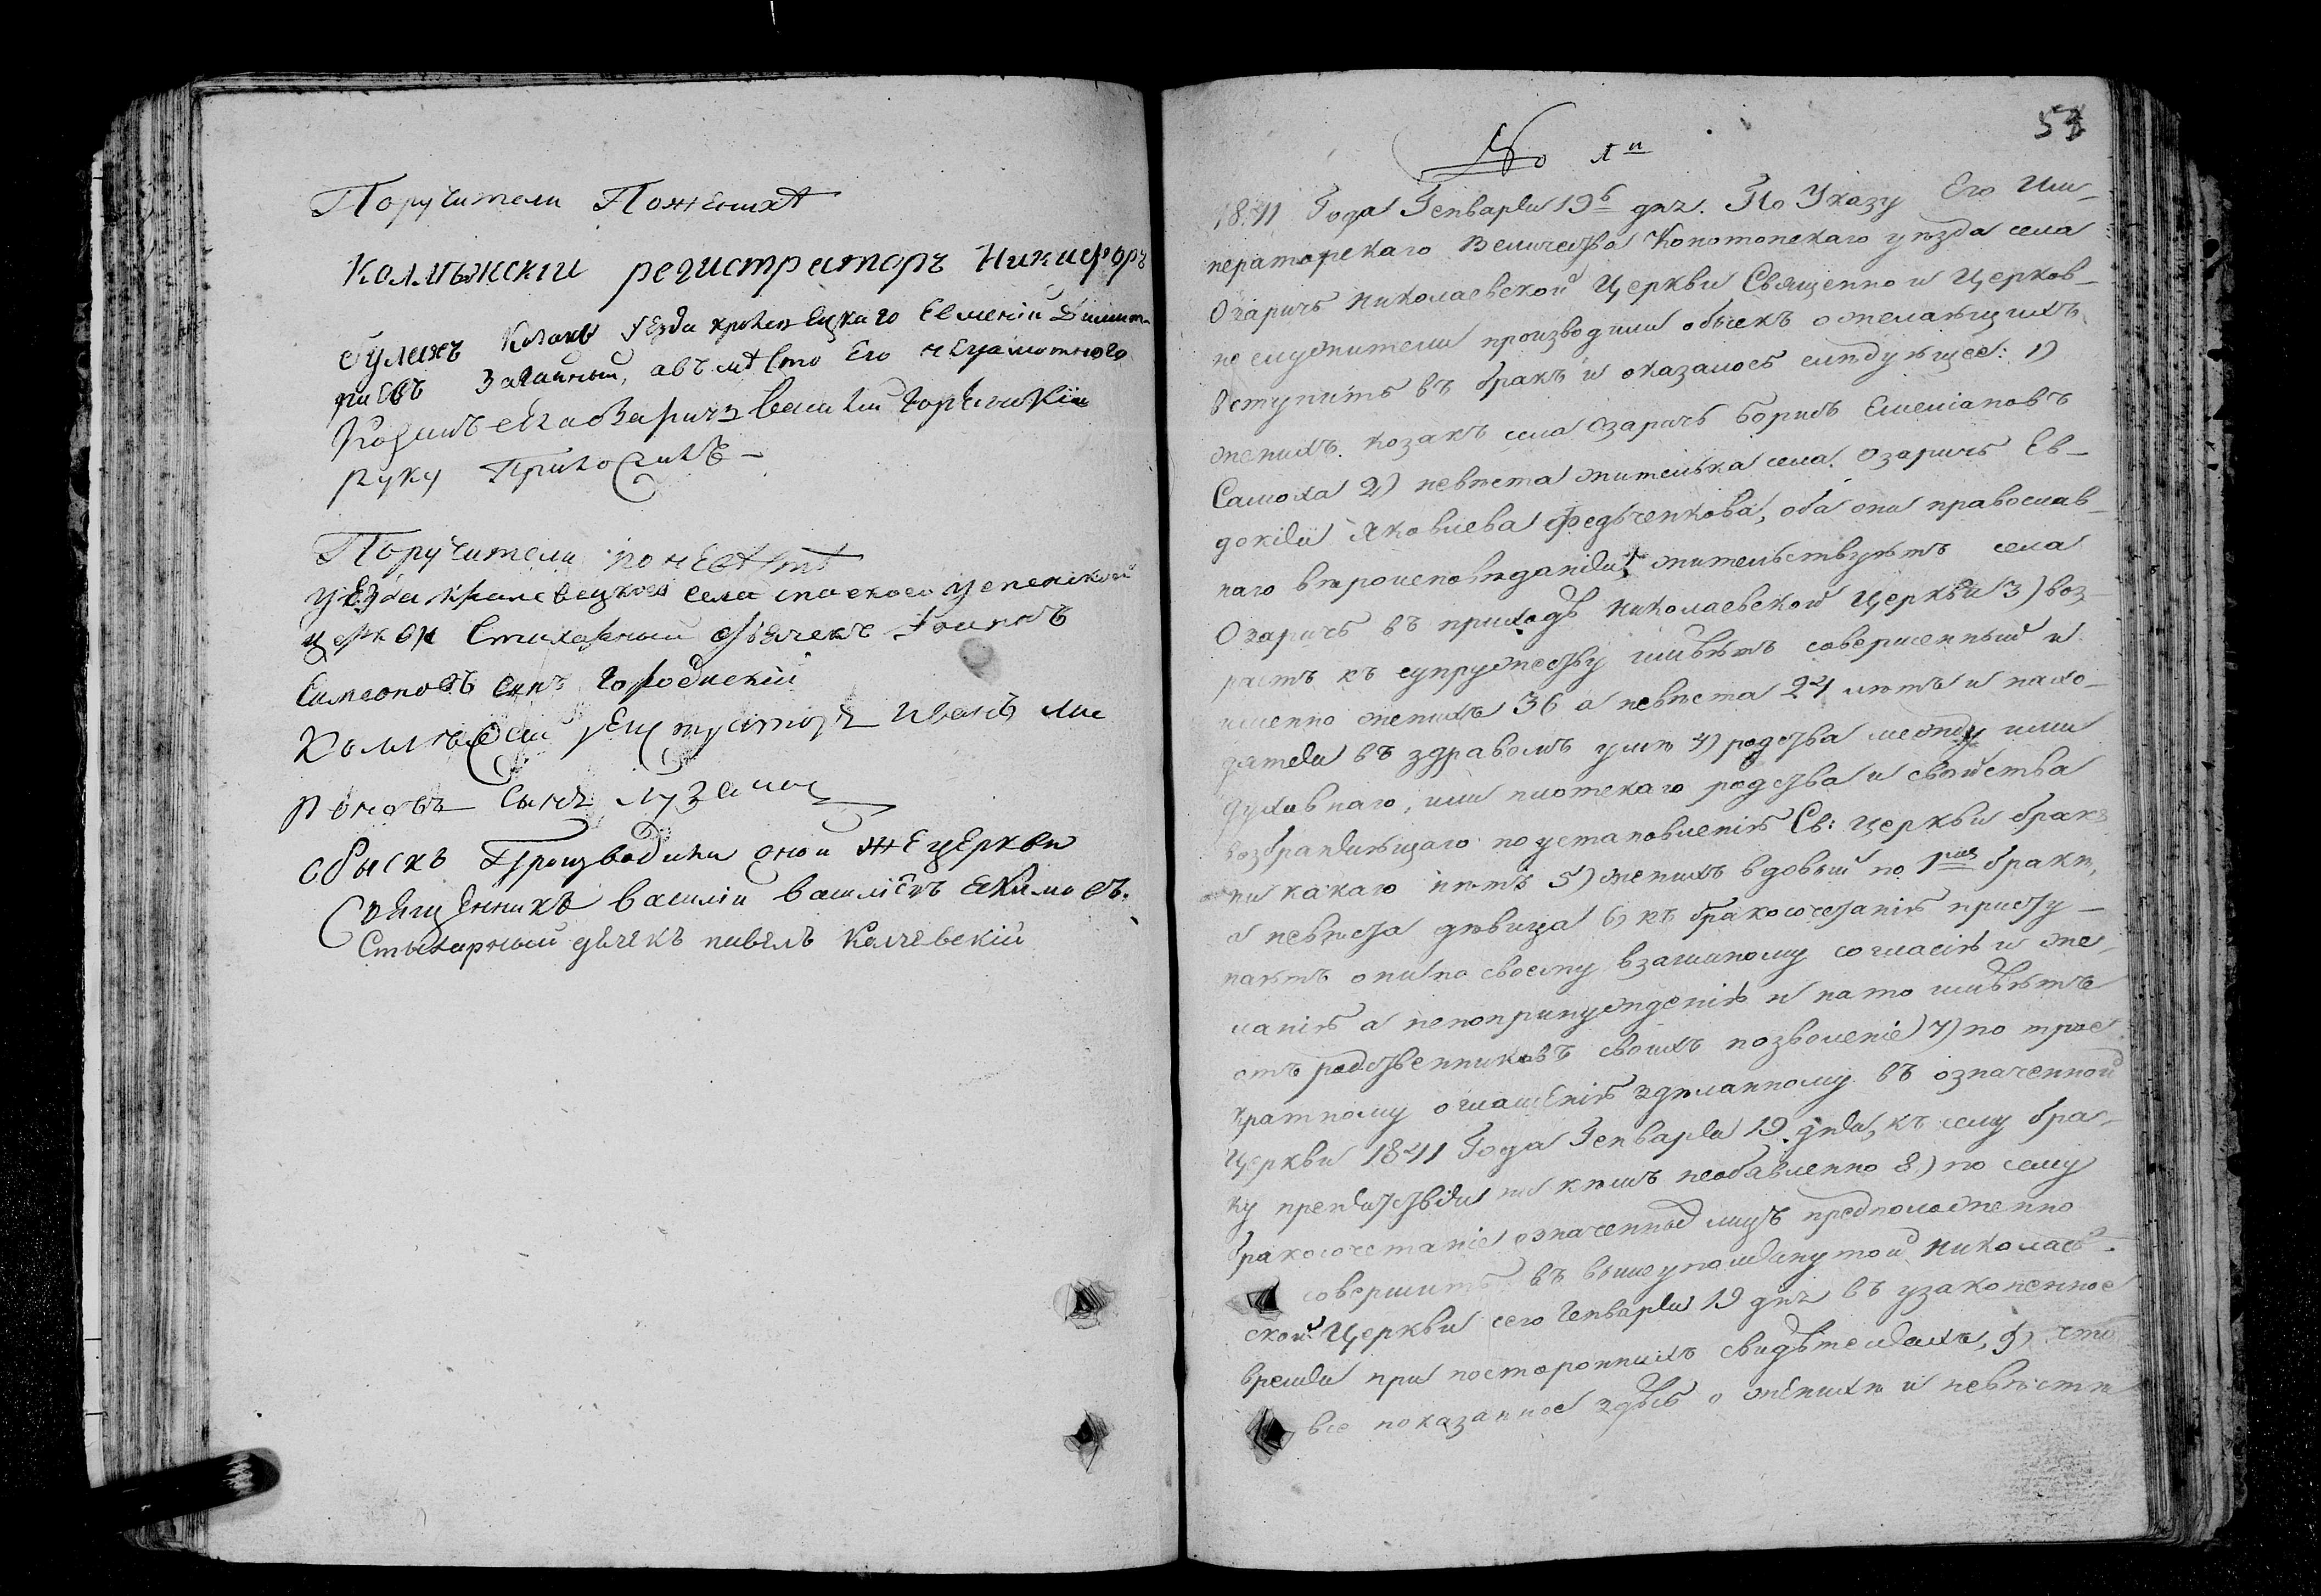 Поручители По женихѣ
Коллѣжскии регистраторъ Никифоръ
Козакъ уезда кролевецкаго Евмений Димит
риевъ Загайный, а вмѣсто Его неграмотного
руку Приложилъ
Поручители по невѣстѣ
уезда кролевецкого села спаского успенской
церкви Стихарный дьячекъ Іоаннъ
Симеоновъ сынъ Городиский
Иванъ Ми
роновъ Сынъ
обыскъ Производили оной же церкви
Священникъ василий васильевъ Екимовъ.
Стихарный дьячекъ павелъ Калчевский
53
№ 1й
1841 Года Генваря 19 дня. По Указу Его Им-
ператорскаго Величества Конотопскаго уѣзда села
Озаричъ Николаевской Церкви Священно и Церков-
нослужители производили обыскъ о желающихъ
вступить въ бракъ и оказалось слѣдующее: 1)
женихъ козакъ села Озаричъ Борисъ Емелiановъ
Самоха 2) невѣста жителька села Озаричъ Ев-
докiя Яковлева Федченкова, оба они православ-
наго вѣроисповѣданiя, жительствуютъ села
Озаричъ въ приходѣ Николаевской Церкви 3) воз-
растъ къ супружеству имѣютъ совершенный и
именно женихъ 36 а невѣста 24 лѣтъ и нахо-
дятся въ здравомъ умѣ 4) родства между ими
духовнаго, или плотскаго родства и свойства
возбраняющаго по установленiю Св: Церкви бракъ
никакаго нѣтъ 5) женихъ вдовый по 1мъ бракѣ,
а невѣста дѣвица 6) къ бракосочетанiю присту-
паютъ они по своему взаимному согласiю и же-
ланiю а не по принужденiю и на то имѣютъ
отъ родственниковъ своихъ позволенiе 7) по трое
кратному оглашенiю здѣланному въ означенной
Церкви 1841 Года Генваря 19 дня, къ сему бра-
ку препятствiя ни кѣмъ необявленно 8) по сему
бракосочетанiе означенныхъ лицъ предположенно
совершить въ вышеупомянутой Николаев-
ской Церкви сего Генваря 19 дня въ узаконенное
время при постороннихъ свидѣтеляхъ, 9) что
все показанное здѣсь о женихѣ и невѣстѣ